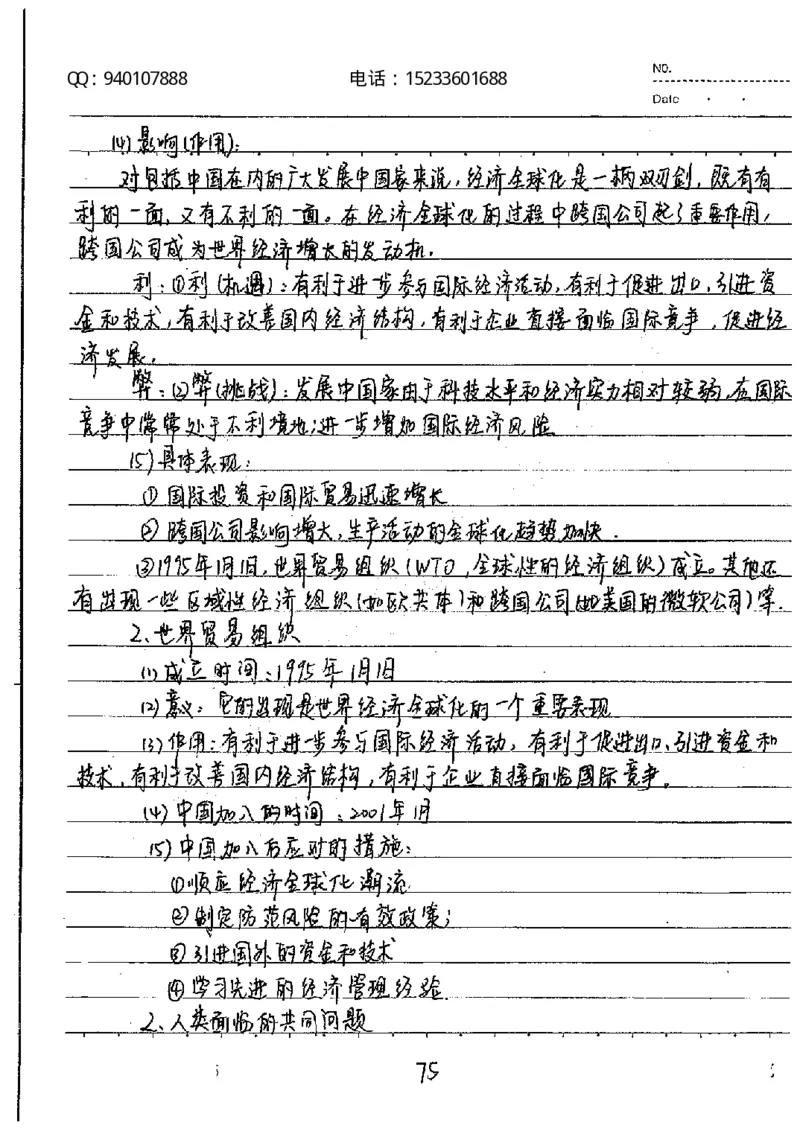 QQ：940107888 电话：15233601688 NO.
Date
(4)影响(作用)：
对包括中国在内的广大发展中国家来说，经济全球化是一柄双刃剑，既有有
利的一面，又有不利的一面。在经济全球化的过程中跨国公司起了重要作用，
跨国公司成为世界经济增长的发动机。
利：①利(机遇)：有利于进步参与国际经济活动，有利于促进出口，引进资
金和技术，有利于改善国内经济结构，有利于企业直接面临国际竞争，促进经
济发展。
弊：②弊(挑战)：发展中国家由于科技水平和经济实力相对较弱，在国际
竞争中常常处于不利境地；进一步增加国际经济风险
(5)具体表现：
①国际投资和国际贸易迅速增长
②跨国公司影响增大，生产活动的全球化趋势加快.
③1995年1月1日，世界贸易组织(WTO，全球性的经济组织)成立。其他还
有出现一些区域性经济组织(如欧共体)和跨国公司(如美国的微软公司)等.
2、世界贸易组织
(1)成立时间：1995年1月1日
(2)意义：它的出现是世界经济全球化的一个重要表现
(3)作用：有利于进一步参与国际经济活动，有利于促进出口、引进资金和
技术，有利于改善国内经济结构，有利于企业直接面临国际竞争。
(4)中国加入的时间：2001年1月
(5)中国加入后应对的措施：
①顺应经济全球化潮流
②制定防范风险的有效政策；
③引进国外的资金和技术
④学习先进的经济管理经验
2、人类面临的共同问题
75